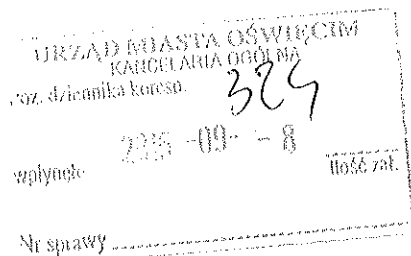 URZĄD MIASTA OŚWIĘCIM
KANCELARIA OGÓLNA
poz. dziennika koresp. 324
-09- - 8
wpłynęło Ilość zał.
Nr sprawy